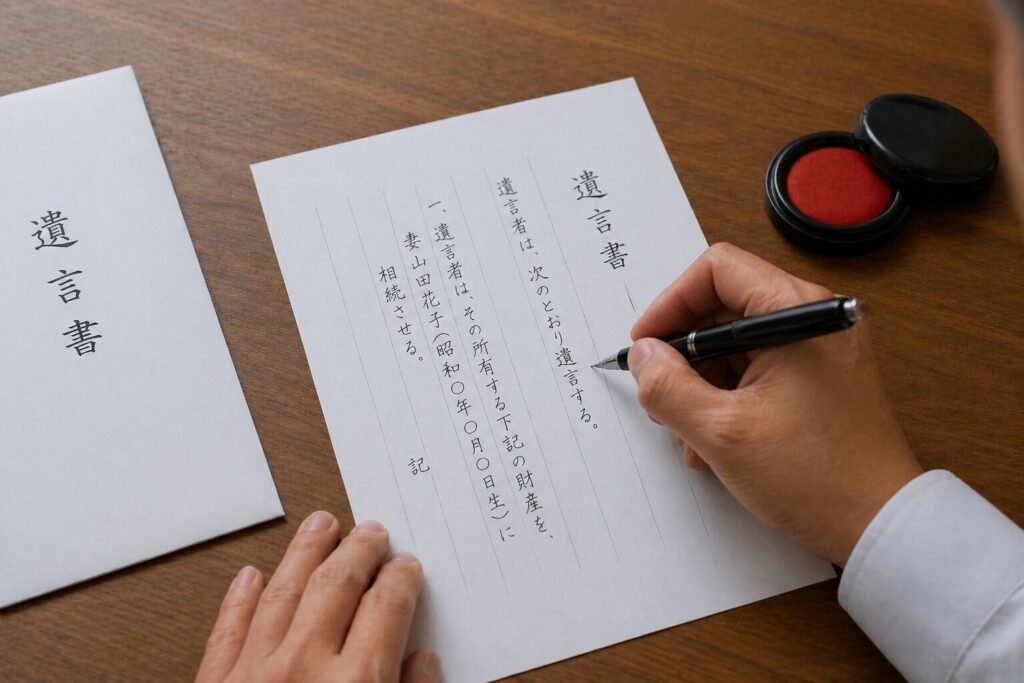 遺言書
遺言者は、次のとおり遺言する。
一、遺言者は、その所有する下記の財産を、
妻山田花子(昭和〇年〇月〇日生)に
相続させる。
記
遺言書